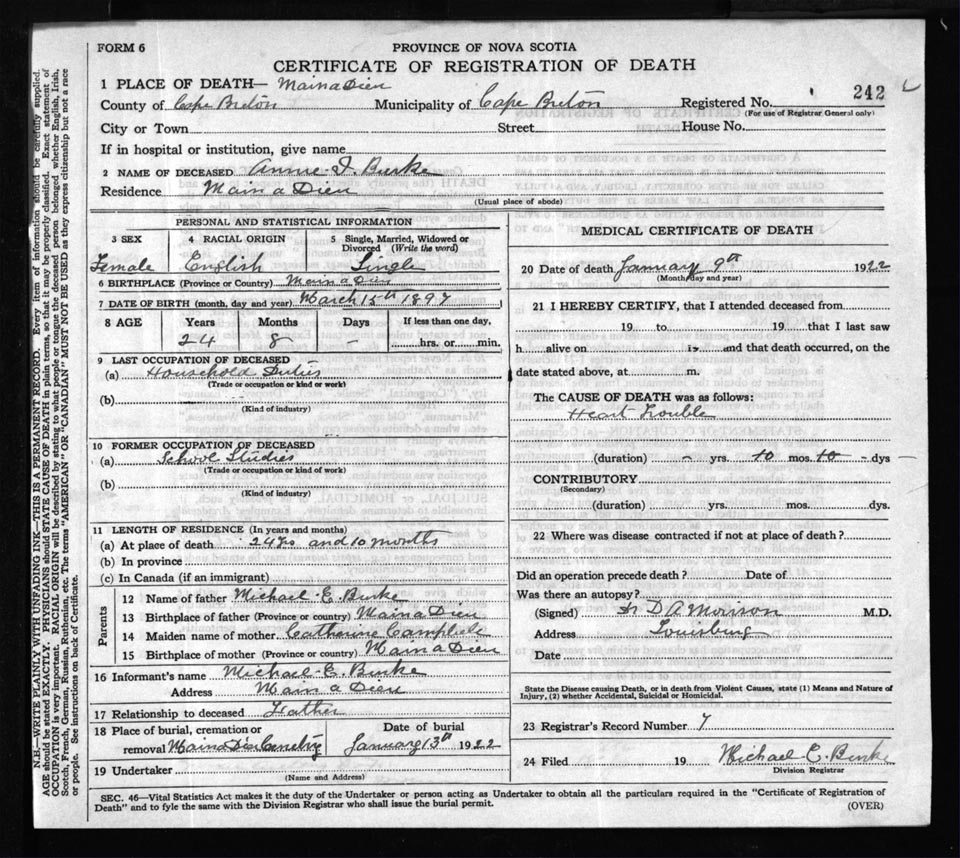 FORM 6
PROVINCE OF NOVA SCOTIA
CERTIFICATE OF REGISTRATION OF DEATH
1 PLACE OF DEATH— Main a Dieu
County of Cape Breton Municipality of Cape Breton Registered No. 242
(For use of Registrar General only)
City or Town Street House No.
If in hospital or institution, give name
2 NAME OF DECEASED Annie I. Burke
Residence Main a Dieu
(Usual place of abode)
PERSONAL AND STATISTICAL INFORMATION
3 SEX 4 RACIAL ORIGIN 5 Single, Married, Widowed or Divorced (Write the word)
Female English Single
6 BIRTHPLACE (Province or Country) Main a Dieu
7 DATE OF BIRTH (month, day and year) March 15th 1897
8 AGE Years Months Days If less than one day,
24 8 - hrs. or min.
9 LAST OCCUPATION OF DECEASED
(a) Household Duties
(Trade or occupation or kind or work)
(b)
(Kind of industry)
10 FORMER OCCUPATION OF DECEASED
(a) School Studies
(Trade or occupation or kind or work)
(b)
(Kind of industry)
11 LENGTH OF RESIDENCE (In years and months)
(a) At place of death 24 yrs and 10 months
(b) In province
(c) In Canada (if an immigrant)
Parents
12 Name of father Michael E. Burke
13 Birthplace of father (Province or country) Main a Dieu
14 Maiden name of mother Catherine Campbell
15 Birthplace of mother (Province or country) Main a Dieu
16 Informant's name Michael E. Burke
Address Main a Dieu
17 Relationship to deceased Father
18 Place of burial, cremation or removal Main a Dieu Cemetery
Date of burial January 13th 1922
19 Undertaker
(Name and Address)
MEDICAL CERTIFICATE OF DEATH
20 Date of death January 9th 1922
(Month, day and year)
21 I HEREBY CERTIFY, that I attended deceased from
19 to 19 that I last saw
h alive on 19 and that death occurred, on the
date stated above, at m.
The CAUSE OF DEATH was as follows:
Heart Trouble
(duration) - yrs. 10 mos. 10 - dys
CONTRIBUTORY
(Secondary)
(duration) yrs. mos. dys.
22 Where was disease contracted if not at place of death?
Did an operation precede death? Date of
Was there an autopsy?
(Signed) Dr D A Morrison M.D.
Address Louisburg
Date
State the Disease causing Death, or in death from Violent Causes, state (1) Means and Nature of
Injury, (2) whether Accidental, Suicidal or Homicidal.
23 Registrar's Record Number 7
24 Filed 19 Michael E. Burke
Division Registrar
SEC. 46—Vital Statistics Act makes it the duty of the Undertaker or person acting as Undertaker to obtain all the particulars required in the "Certificate of Registration of
Death" and to fyle the same with the Division Registrar who shall issue the burial permit.
(OVER)
N.B.—WRITE PLAINLY WITH UNFADING INK—THIS IS A PERMANENT RECORD. Every item of information should be carefully supplied.
AGE should be stated EXACTLY. PHYSICIANS should STATE CAUSE OF DEATH in plain terms, so that it may be properly classified. Exact statement of
OCCUPATION is very important. RACIAL ORIGIN will be described by stating to what people or tongue the deceased person belonged whether English, Irish,
Scotch, French, German, Russian, Ruthenian, etc. The terms "AMERICAN" OR "CANADIAN" MUST NOT BE USED as they express citizenship but not a race
or people. See instructions on back of Certificate.